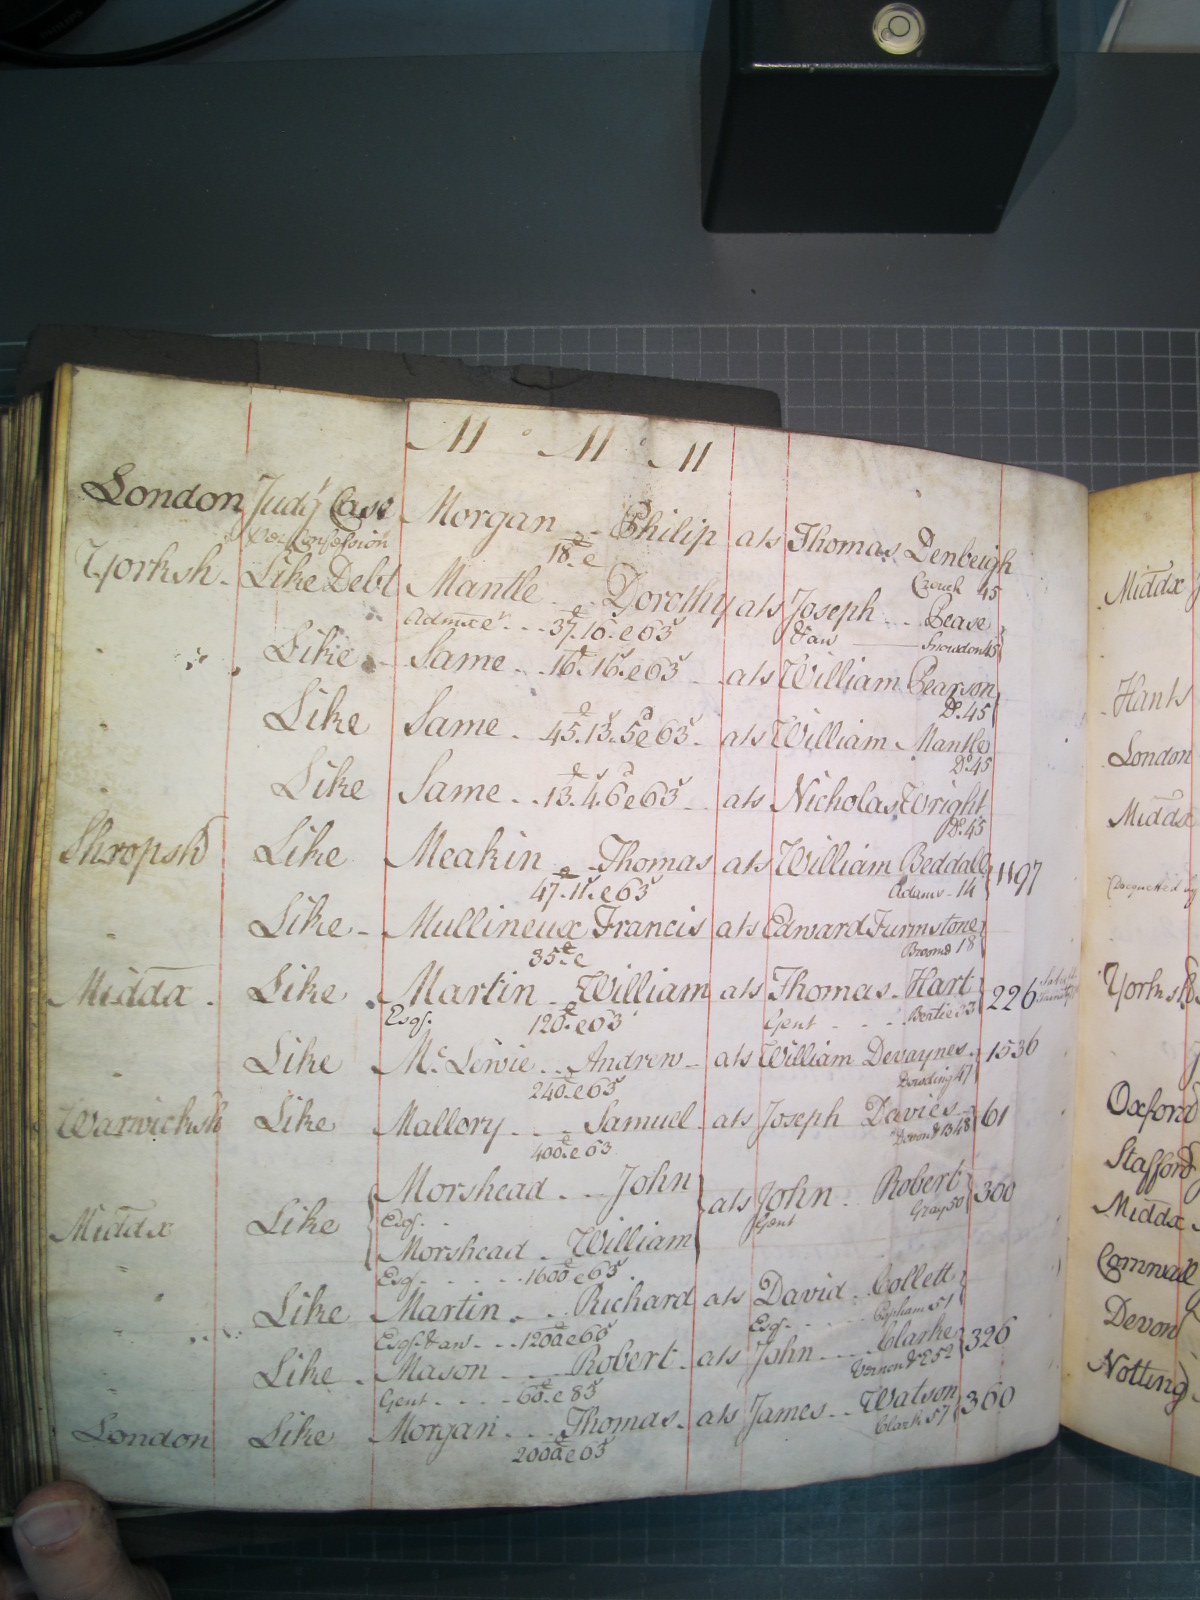 M M M
London Judgt Case Morgan Philip ats Thomas Denbeigh
per Confession 18 e Crouch 45
Yorksh Like Debt Mantle Dorothy ats Joseph Pease
Admxe 37.16 e 63s & an Snowdon 45
Like Same 16.16 e 63s ats William Pearson
Do. 45
Like Same 45.13.5 e 63s ats William Mantle
Do. 45
Like Same 13.4.6 e 63s ats Nicholas Wright
Do. 45
Shropsh Like Meakin Thomas ats William Beddall 1197
47.11 e 63s Adams 14
" Like Mullineux Francis ats Edward Furmstone
35 e Broome 18
Middx Like Martin William ats Thomas Hart 226
Esqr. 120 e 63s Gent Bertie 33
" Like Mc Lewie Andrew ats William Devaynes 1536
240 e 63s Dowding 47
Warwicksh Like Mallory Samuel ats Joseph Davies 61
400 e 63 48
Middx Like Morshead John ats John Robert 360
Esqr. Gent Gray 50
Morshead William
Esqr. 1600 e 63s
" Like Martin Richard ats David Collett
Esqr. & an 1200 e 63s Esqr. 51
" Like Mason Robert ats John Clarke 326
Gent 60 e 83s Vernon & E 52
London Like Morgan Thomas ats James Watson 360
2000 e 63s Clark 57
Middx
Hants
London
Middx
Yorksh
Oxford
Stafford
Middx
Cornwall
Devon
Notting